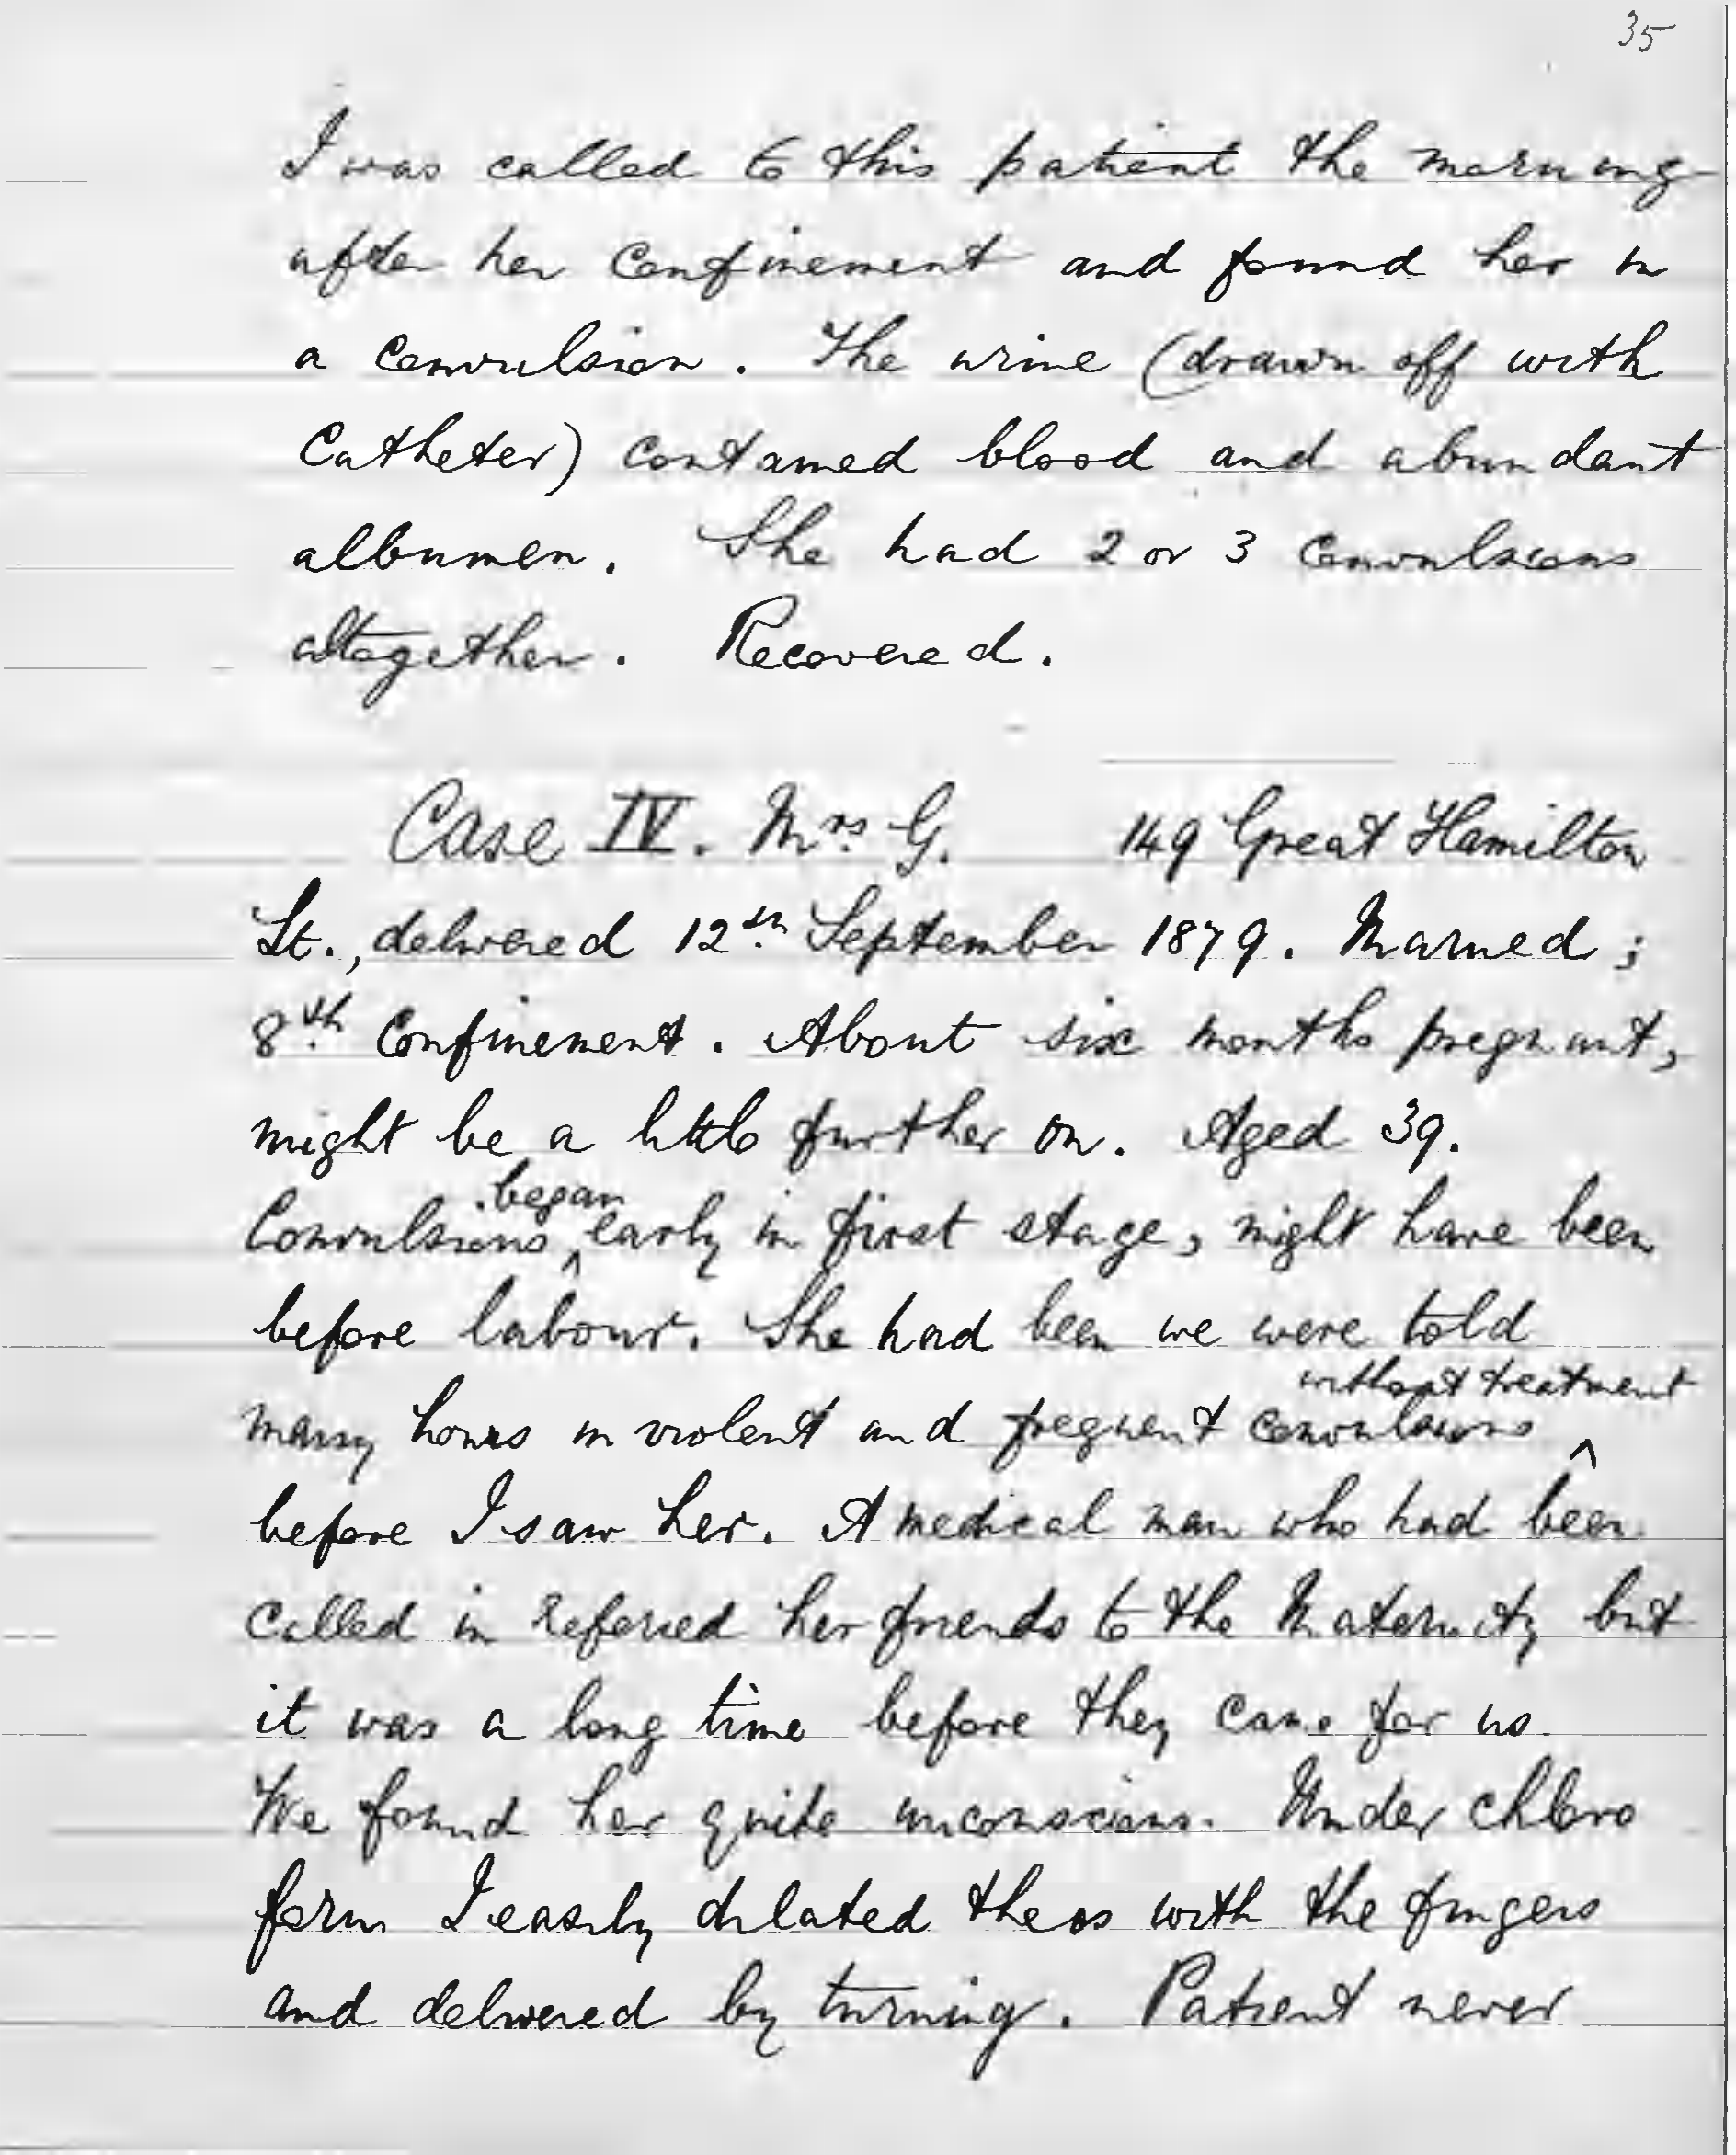 35
I was called to this patient the morning
after her confinement and found her in
a convulsion. The urine (drawn off with
Catheter) contained blood and abundant
albumen. She had 2 or 3 convulsions
altogether. Recovered.
Case IV. Mrs. G. 149 Great Hamilton
St., delivered 12th September 1879. Married;
8th Confinement. About six months pregnant,
might be a little further on. Aged 39.
Convulsions ^began early in first stage, might have been
before labour. She had been we were told
many hours in violent and frequent convulsions ^without treatment
before I saw her. A medical man who had been
called in referred her friends to the Maternity but
it was a long time before they came for us.
We found her quite unconscious. Under chloro
form I easily dilated the os with the fingers
and delivered by turning. Patient never